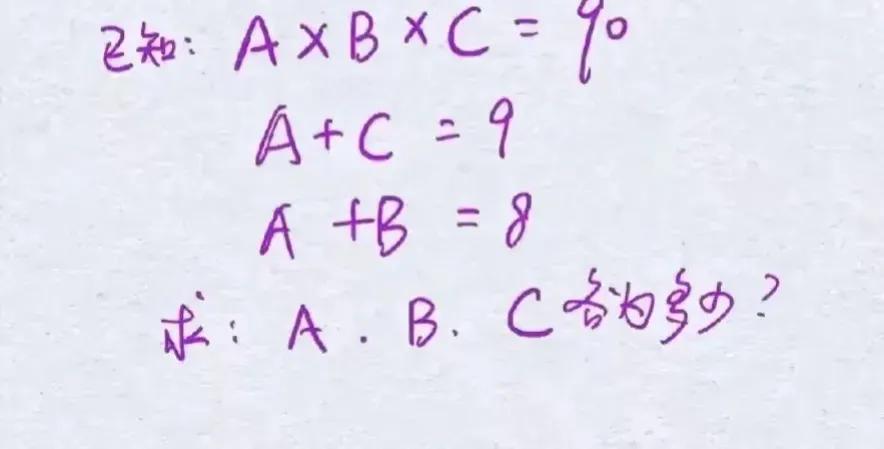 已知: A×B×C=90
A+C=9
A+B=8
求: A. B. C各为多少?